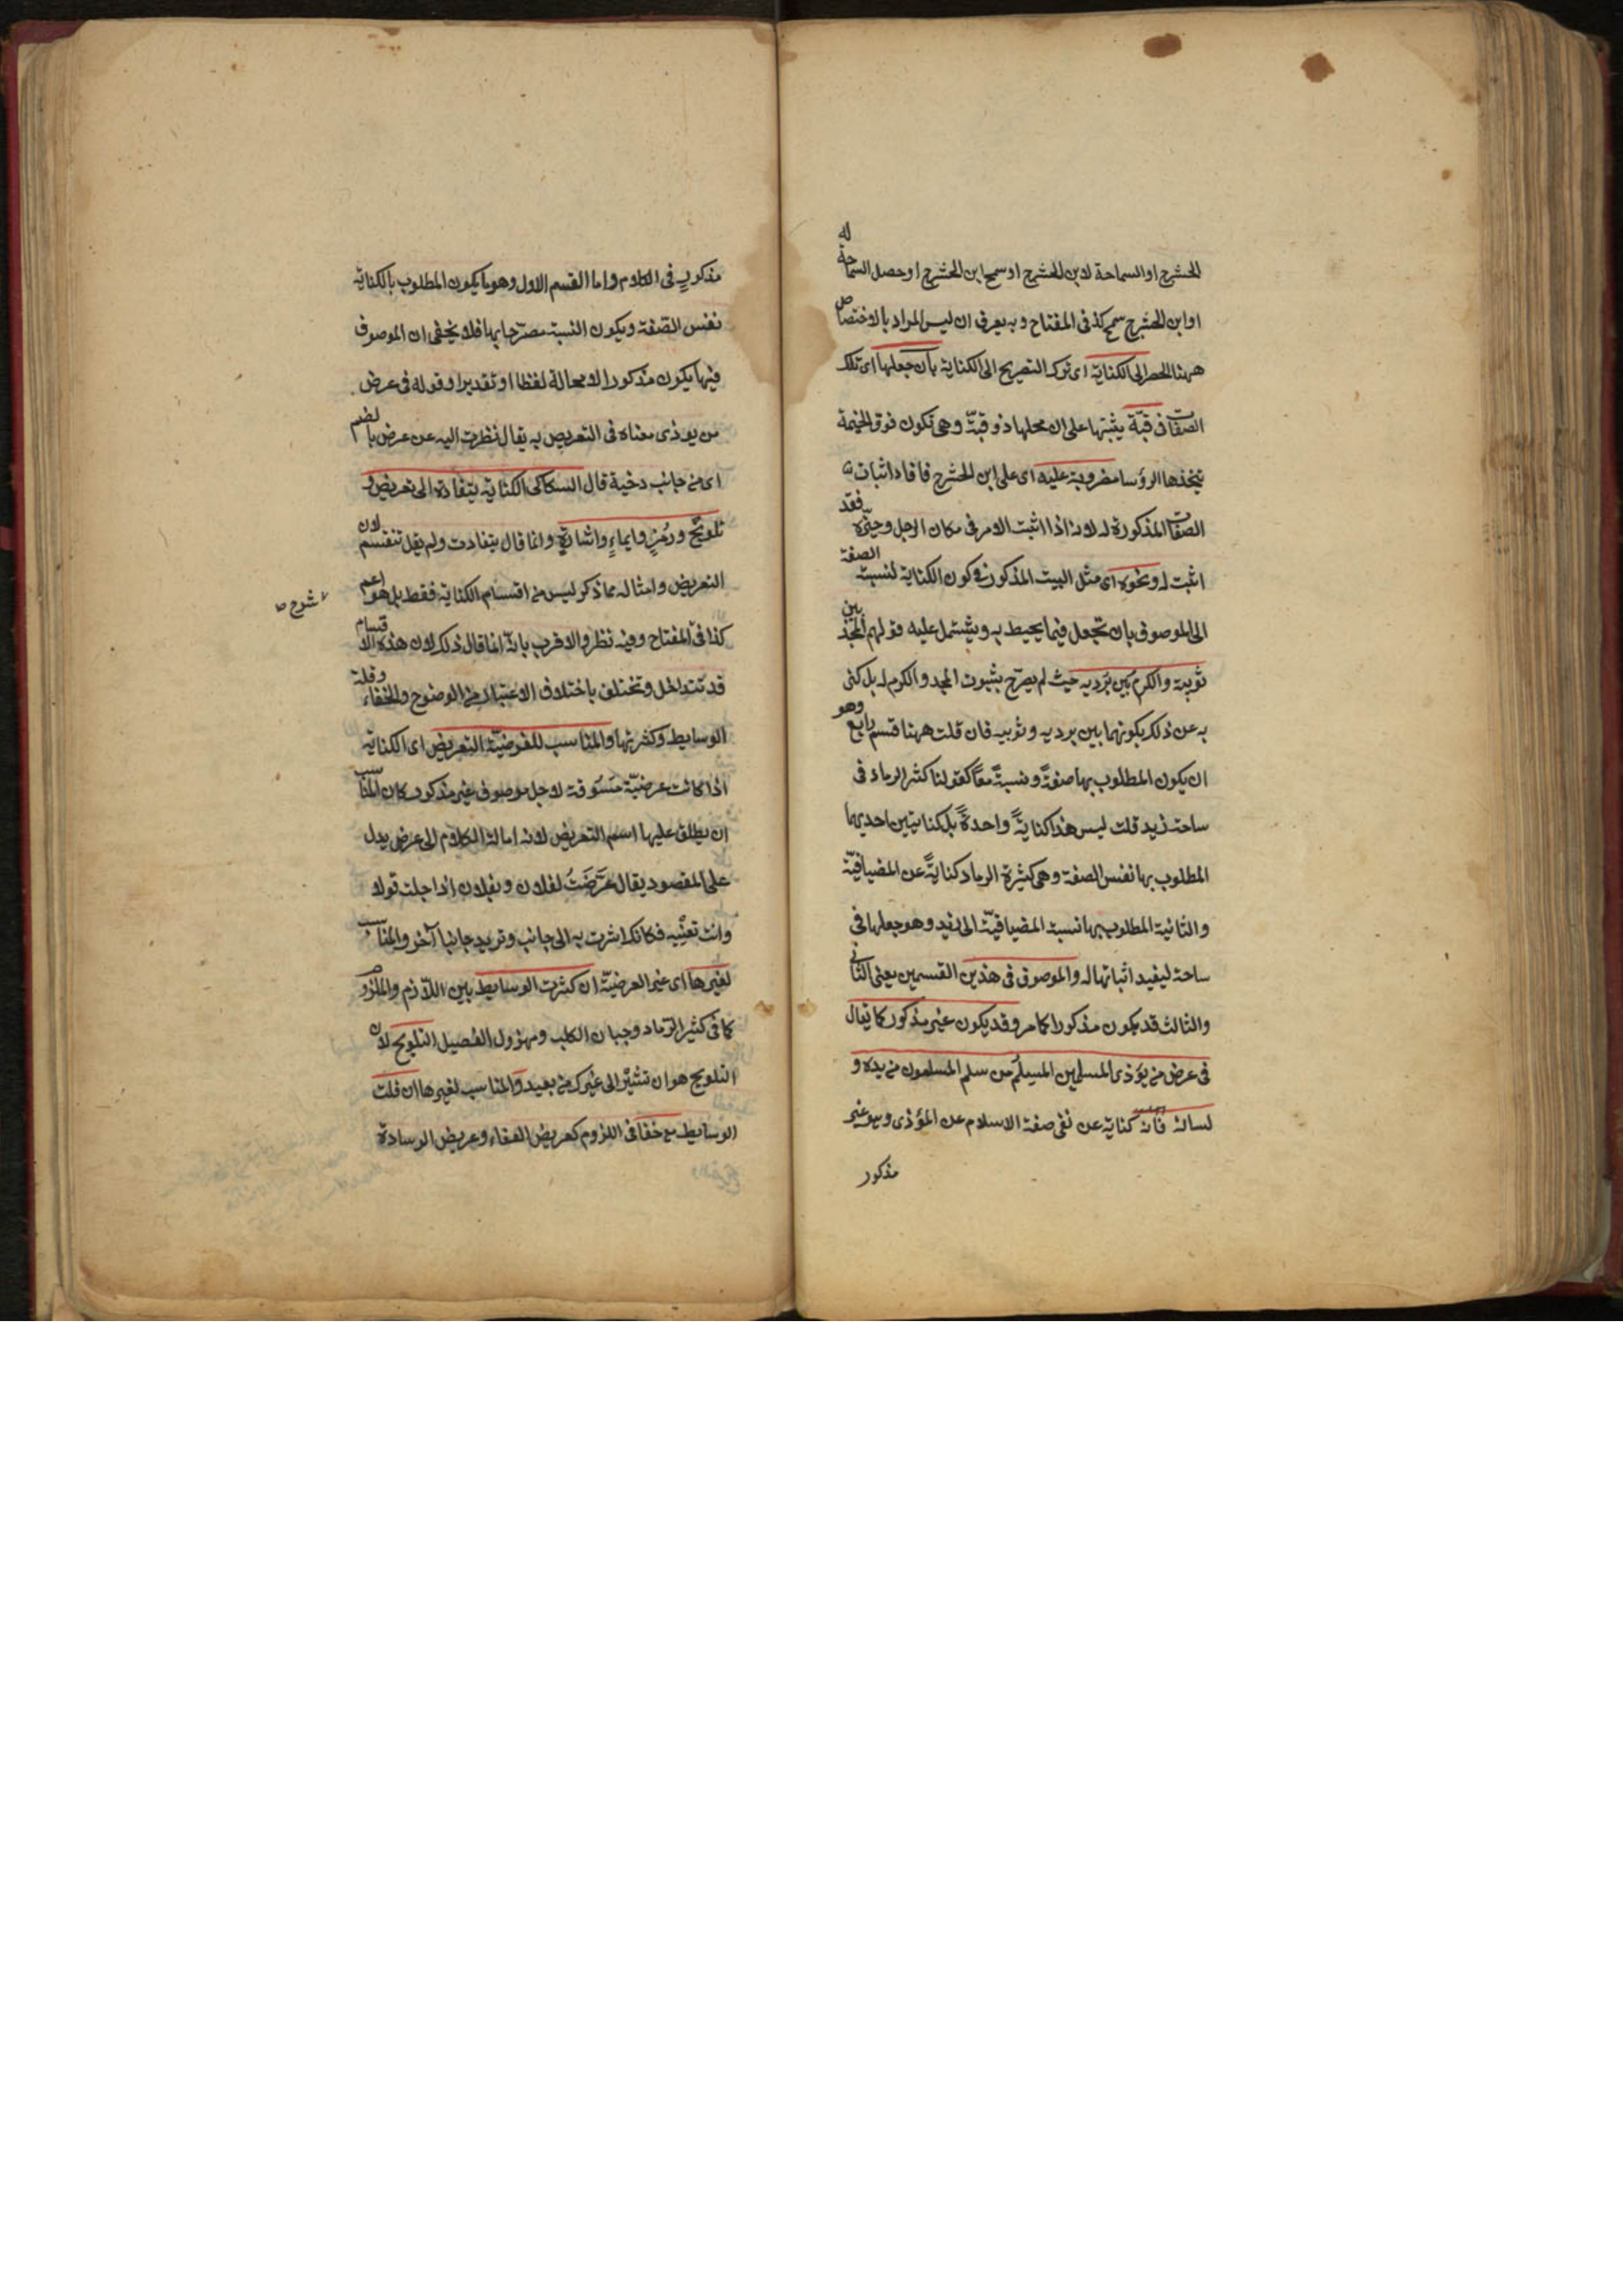 الحشرج او السماحة لابن الحشرج او سمح ابن الحشرج او حصل السماحة له
او ابن الحشرج سمح كذا فى المفتاح و به يعرف ان ليس المراد بالاختصاص
ههنا الحصر الى الكناية اى ترك التصريح الى الكناية بأن جعلها اى تلك
الصفات فى قبّة يثبتها على ان محلها ذو قبّة وهى تكون فوق الخيمة
يتخذها الرؤسا مضروبة عليه اى على ابن الحشرج فافاد اثبات
الصفات المذكورة له لانه اذا اثبت الامر فى مكان الرجل وحيّزه فقد
اثبت له ونحوه اى مثل البيت المذكور فى كون الكناية لنسبة الصفة
الى الموصوف بان تجعل فيما يحيط به ويشتمل عليه قولهم المجد بين
ثوبيه والكرم بين برديه حيث لم يصرّح بثبوت المجد والكرم له بل كنى
به عن ذلك بكونهما بين برديه وثوبيه فان قلت ههنا قسم رابع وهو
ان يكون المطلوب بها صفةً ونسبةً معًا كقولنا كثر الرماد فى
ساحة زيد قلت ليس هذا كنايةً واحدةً بل كنايتين احديهما
المطلوب بها نفس الصفة وهى كثرة الرماد كنايةً عن المضيافيّة
والثانية المطلوب بها نسبة المضيافيّة الى زيد وهو جعلها فى
ساحة ليفيد اثباتها له والموصوف فى هذين القسمين يعنى الثانى
والثالث قد يكون مذكورا كما مر وقد يكون غير مذكور كما يقال
فى عرض من يؤذى المسلمين المسلم من سلم المسلمون من يده و
لسانه فانه كناية عن نفى صفة الاسلام عن المؤذى وهو غير
مذكور
مذكور فى الكلام واما القسم الاول وهو ما يكون المطلوب بالكناية
نفس الصّفة ويكون النسبة مصرّحا بها فلا يخفى ان الموصوف
فيها يكون مذكورا لا محالة لفظا او تقديرا وقوله فى عرض
من يوذى معناه فى التعريض به يقال نظرت اليه عن عرض بالضم
اى من جانب وناحية قال السكاكى الكناية يتفاوت الى تعريض و
تلويح ورمز وايماء واشارة وانما قال يتفاوت ولم يقل تنقسم لان
التعريض وامثاله مما ذكر ليس من اقسام الكناية فقط بل هو اعم
شرح
كذا فى المفتاح وفيه نظر والاقرب بانه انما قال ذلك لان هذه الاقسام
قد تتداخل وتختلف باختلاف الاعتبار من الوضوح والخفاء وقلة
الوسايط وكثرتها والمناسب للعرضيّة التعريض اى الكناية
اذا كانت عرضيّة مسوقة لاجل موصوف غير مذكور كان المناسب
ان يطلق عليها اسم التعريض لانه امالة الكلام الى عرض يدل
على المقصود يقال عَرّضتُ لفلان وبفلان اذا قلت قولا
وانت تعنيه فكانك اشرت به الى جانب وتريد جانبا آخر والمناسب
لغيرها اى غير العرضيّة ان كثرت الوسايط بين اللازم والملزوم
كما فى كثير الرّماد وجبان الكلب ومهزول الفصيل التلويح لان
التلويح هو ان تشير الى غيرك من بعيد والمناسب لغيرها ان قلت
الوسايط مع خفا فى اللزوم كعريض القفاء وعريض الوسادة